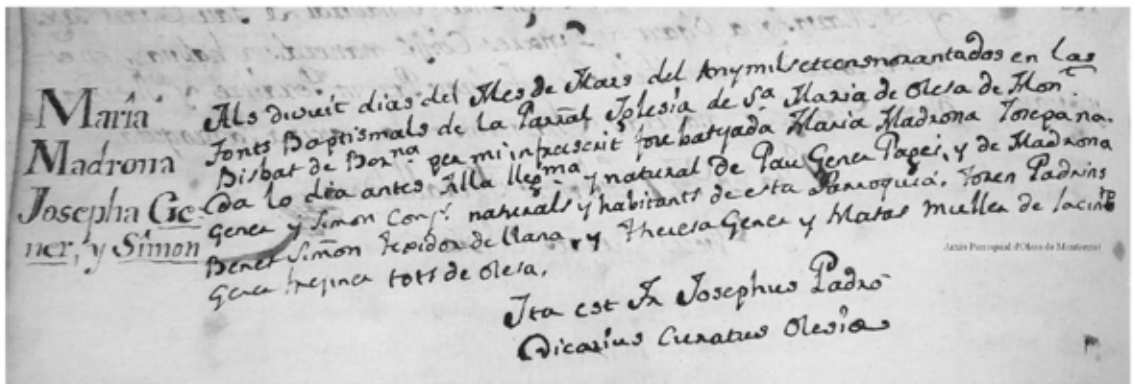 María
Madrona
Josepha Ge-
ner, y Simon
Als divuit dias del Mes de Mars del Any mil setcens norantados en las
fonts Baptismals de la Parral Iglesia de Sa. Maria de Olesa de Mont.
Bisbat de Barna. per mi infrascrit fou batejada Maria Madrona Josepa na-
da lo dia antes filla llegma. y natural de Pau Gener Pages, y de Madrona
Gener y Simon Conj. naturals y habitants de esta Parroquia. Foren Padrins
Benet Simon Texidor de llana, y Theresa Gener y Matas muller de Jacinto
Gener tots de Olesa.
Ita est Fr Josephus Padró
Vicarius Curatus Olesiae
Arxiu Parroquial d'Olesa de Montserrat